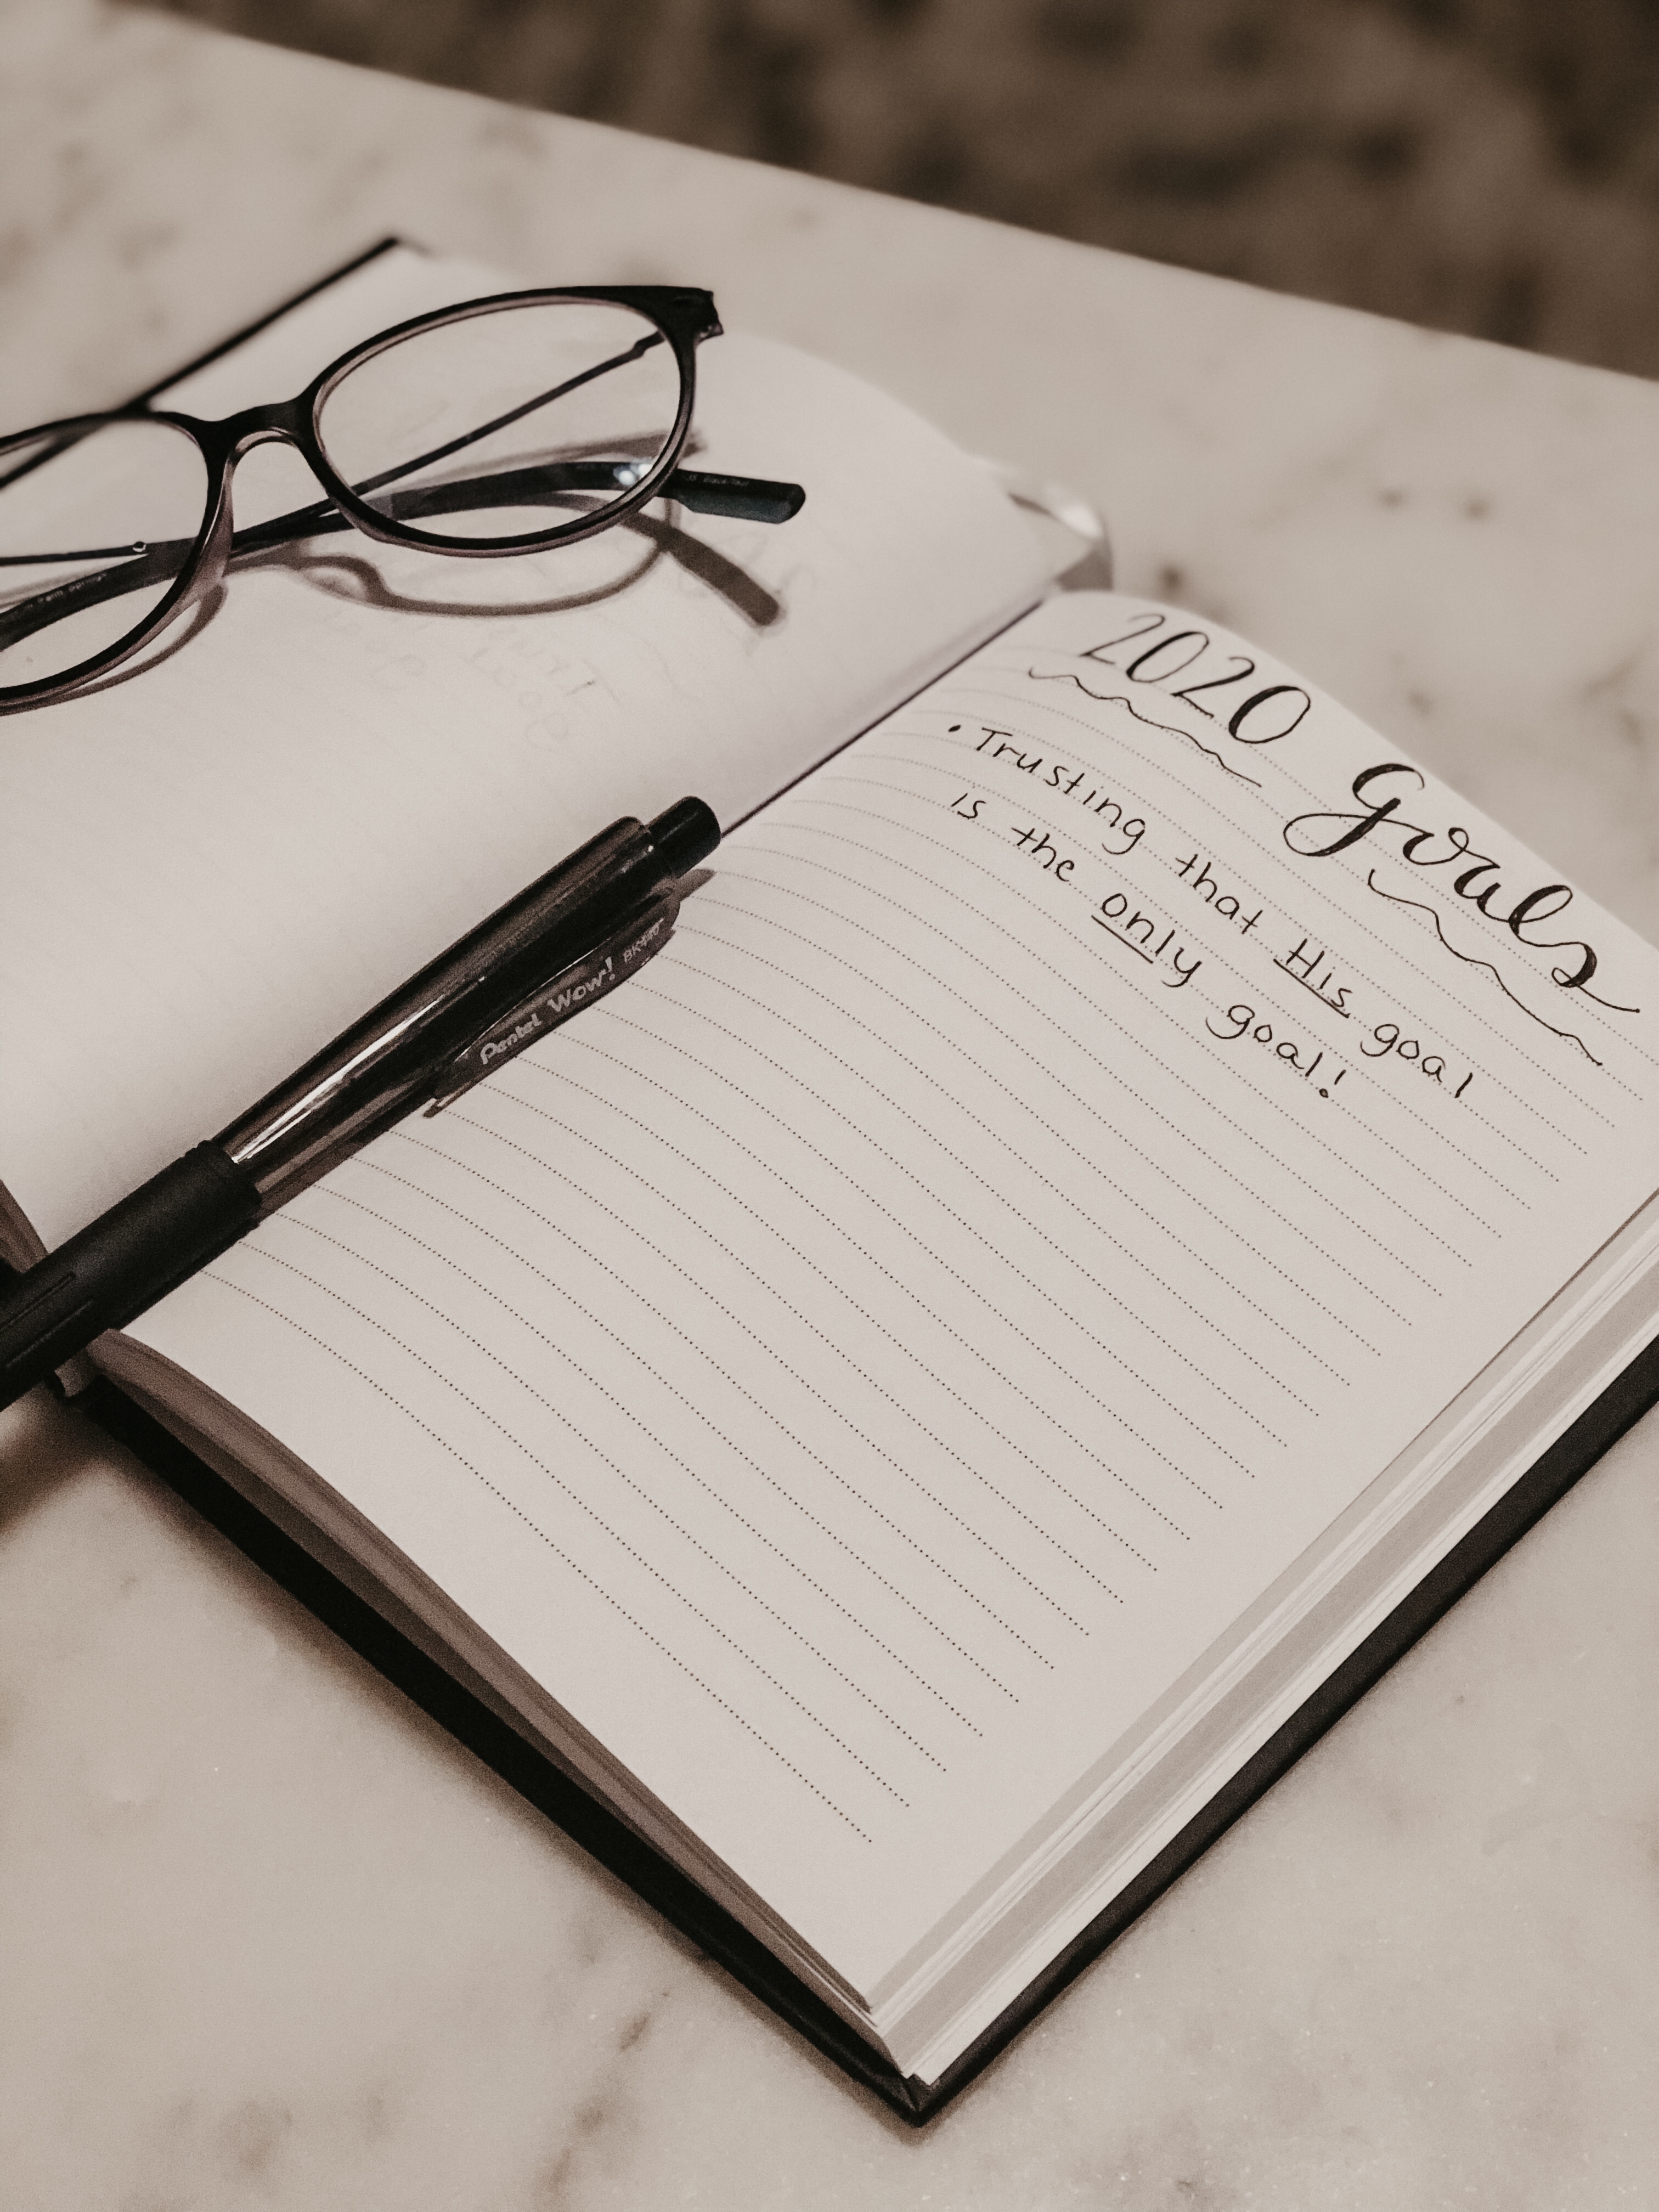 2020 Goals
• Trusting that His goal
is the only goal!
Pentel Wow! BK440